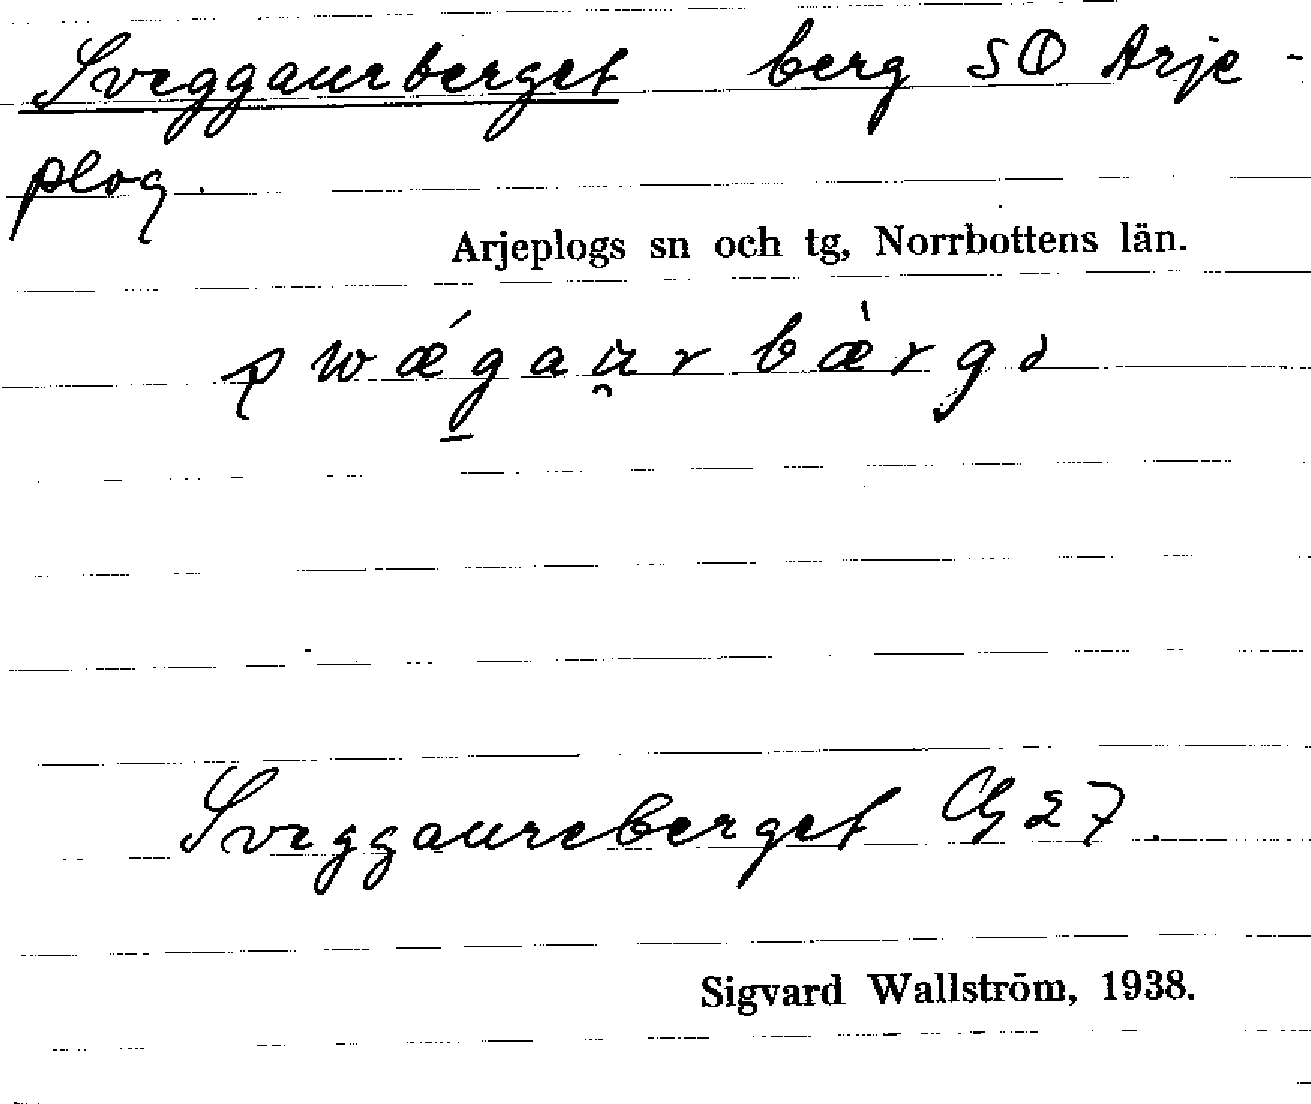 Sveggaurberget berg SO Arje-
plog.
Arjeplogs sn och tg, Norrbottens län.
swǽga u̯r bæ̀rgə
Sveggaureberget CG27.
Sigvard Wallström, 1938.